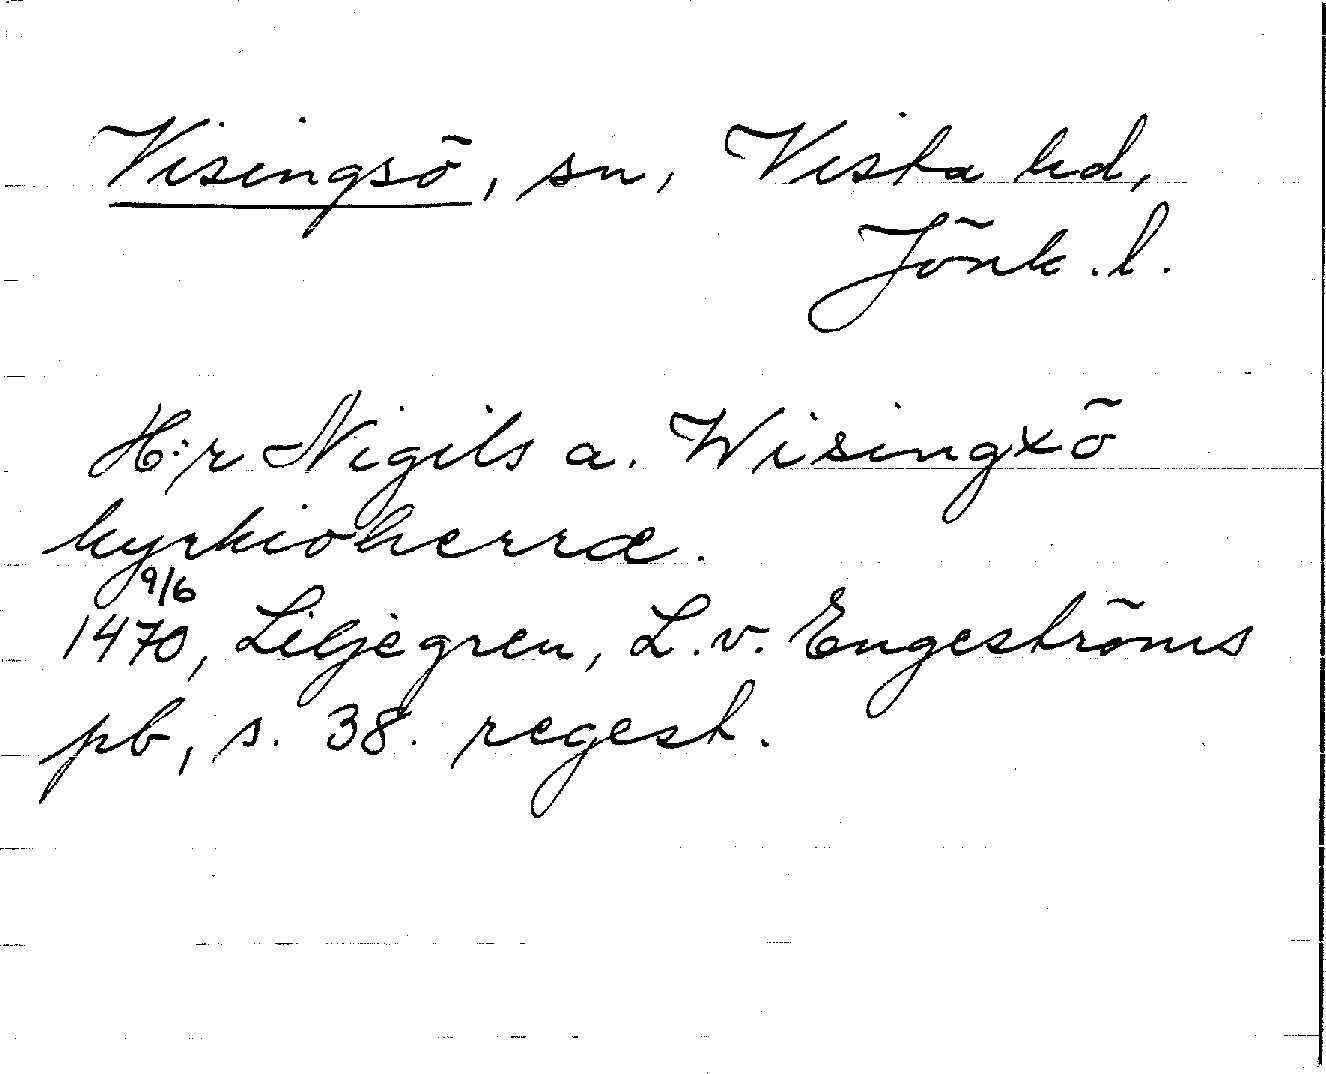 Visingsö, sn, Vista hd,
Jönk. l.
H:r Nigils a. Wisingxö
kyrkioherræ.
9/6
1470, Liljegren, L. v. Engeströms
pb, s. 38. regest.